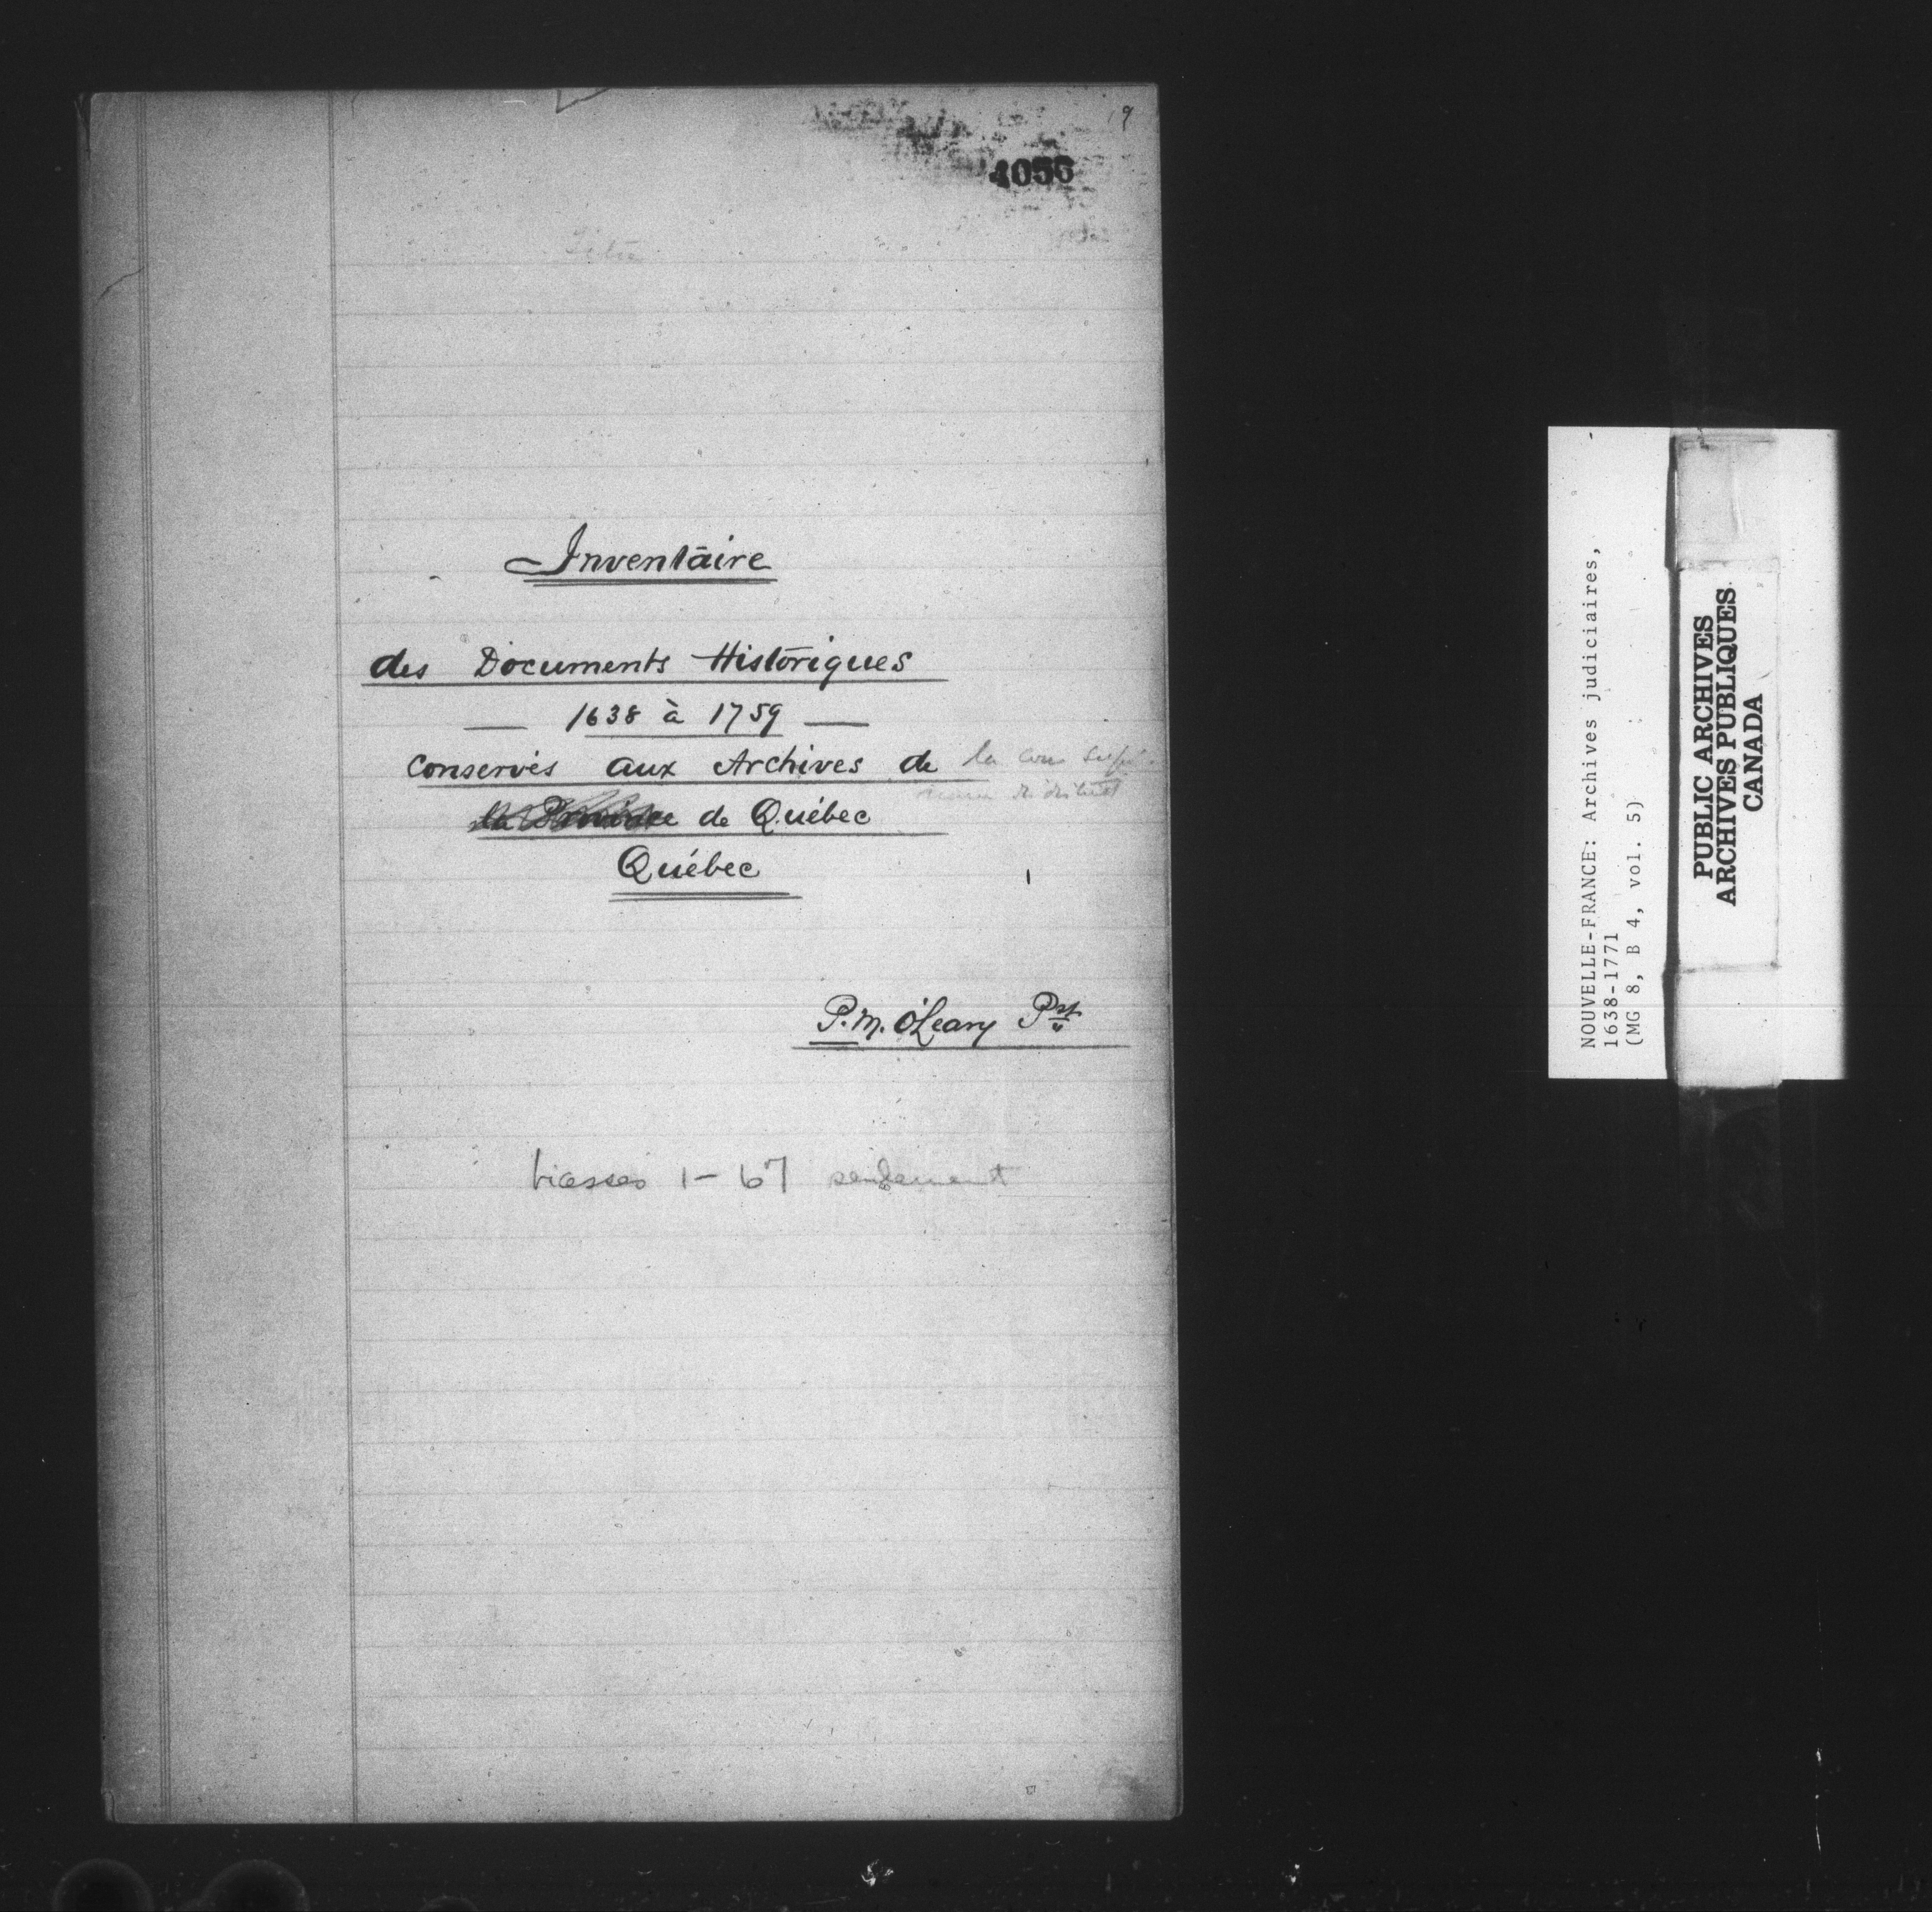 9
4056
Inventaire
des Documents Historiques
1638 à 1759
Conservés aux Archives de la Cour Supé-
rieure du district
la Province de Québec
Québec
P.M. O'Leary Pst
Liasses 1-67 seulement
NOUVELLE-FRANCE: Archives judiciaires,
1638-1771
(MG 8, B 4, vol. 5)
PUBLIC ARCHIVES
ARCHIVES PUBLIQUES
CANADA